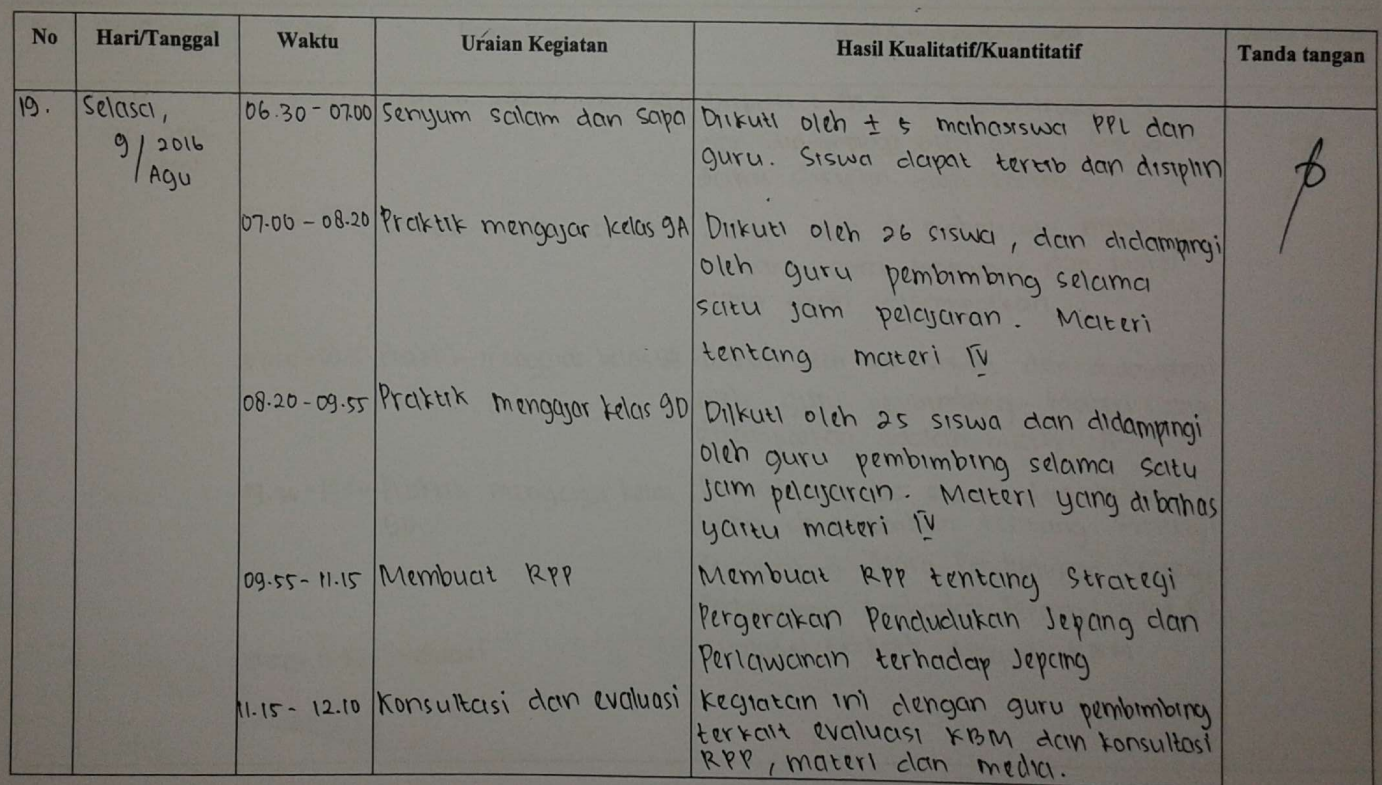 No Hari/Tanggal Waktu Uraian Kegiatan Hasil Kualitatif/Kuantitatif Tanda tangan
19. Selasa, 06.30 - 07.00 Senyum salam dan sapa Diikuti oleh ± 5 mahasiswa PPL dan
9/2016 Agu guru. Siswa dapat tertib dan disiplin
07.00 - 08.20 Praktik mengajar kelas 9A Diikuti oleh 26 siswa, dan didampingi
oleh guru pembimbing selama
satu jam pelajaran. Materi
tentang materi IV
08.20 - 09.55 Praktik mengajar kelas 9D Diikuti oleh 25 siswa dan didampingi
oleh guru pembimbing selama satu
jam pelajaran. Materi yang dibahas
yaitu materi IV
09.55 - 11.15 Membuat RPP Membuat RPP tentang Strategi
Pergerakan Pendudukan Jepang dan
Perlawanan terhadap Jepang
11.15 - 12.10 Konsultasi dan evaluasi Kegiatan ini dengan guru pembimbing
terkait evaluasi KBM dan konsultasi
RPP, materi dan media.